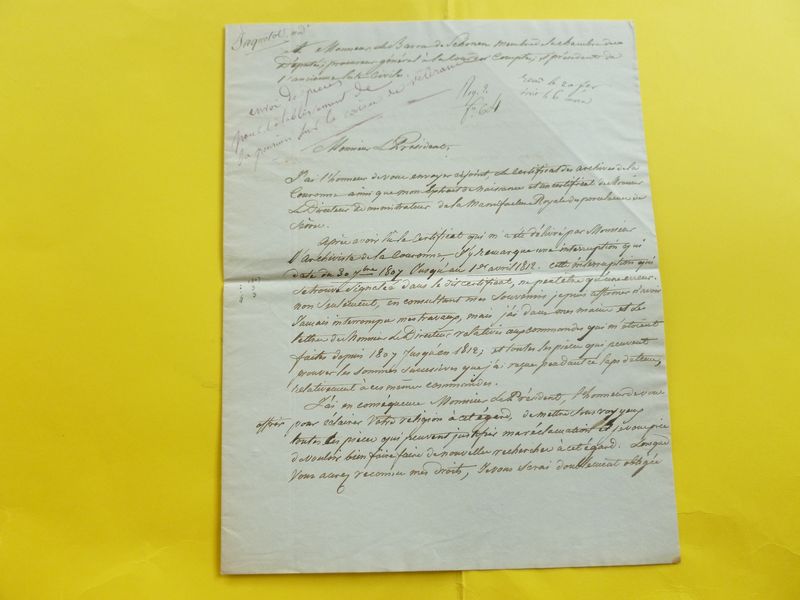 Jaquotot, md.e
à Monsieur le Baron de Schonen membre de la chambre des
Députés, procureur général à la Cour des Comptes, et président de
l'ancienne liste Civile.
envoi de pièces
pour l'établissement de
sa pension sur la caisse de vétérance
Reg. 2.
f.o 64
Monsieur Le Président,
J'ai l'honneur de vous envoyer cijoint, le Certificat des archives de la
Couronne ainsi que mon Extrait de Naissance et un certificat de Monsieur
le Directeur de la Manufacture Royale de porcelaine de
Sèvres.
Après avoir lu le Certificat qui m'a été délivré par Monsieur
l'archiviste de la Couronne J'y remarque une interruption qui
date du 30 9bre 1807 Jusqu'au 1er avril 1812. cette interruption qui
se trouve signalée dans le dit certificat, ne peut être qu'une erreur.
non seulement, en consultant mes Souvenirs je puis affirmer n'avoir
Jamais interrompu mes travaux, mais j'ai dans mes mains et des
lettres de Monsieur le Directeur relatives aux commandes qui m'étoient
faites depuis 1807 Jusqu'en 1812, et toutes les pièces qui peuvent
prouver les sommes successives que j'ai reçue pendant ce laps de tems,
relativement à ces même commandes.
J'ai en conséquence Monsieur Le Président, l'honneur de vous
offrir pour éclairer Votre religion à cet égard, de mettre sous vos yeux
toutes les pièces qui peuvent justifier ma réclamation et je vous prie
de vouloir bien faire faire de nouvelles recherches à cet égard. Lorsque
Vous aurez reconnu mes droits, Je vous serai doublement obligée